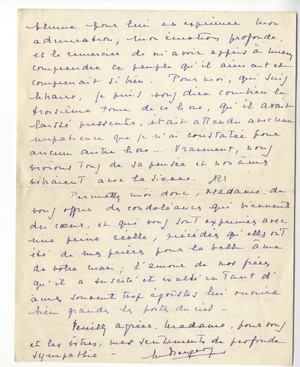 plume pour lui en exprimer mon
admiration, mon émotion profonde
et le remercier de m'avoir appris à mieux
comprendre ce peuple qu'il aimait et
comprenait si bien. Pour moi, qui suis
libraire, je puis vous dire combien le
troisième tome de ce livre, qu'il avait
laissé pressentir, était attendu avec une
impatience que je n'ai constatée pour
aucun autre livre. Vraiment, nous
vivions tous de sa pensée et nos âmes
vibraient avec la sienne.
Permettez moi donc, Madame, de
vous offrir des condoléances qui viennent
du cœur, et qui vous sont exprimées avec
une peine réelle, précédées qu'elles ont
été de mes prières pour la belle âme
de votre mari; l'amour de nos frères
qu'il a suscité et exalté en tant d'
âmes souvent trop égoïstes lui ouvrira
bien grandes les portes du ciel.
Veuillez agréer, Madame, pour vous
et les vôtres, mes sentiments de profonde
sympathie -